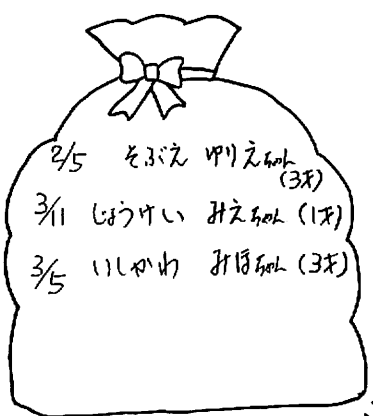 2/5 そぶえ ゆりえちゃん (3才)
3/11 じょうけい みえちゃん (1才)
3/5 いしかわ みほちゃん (3才)